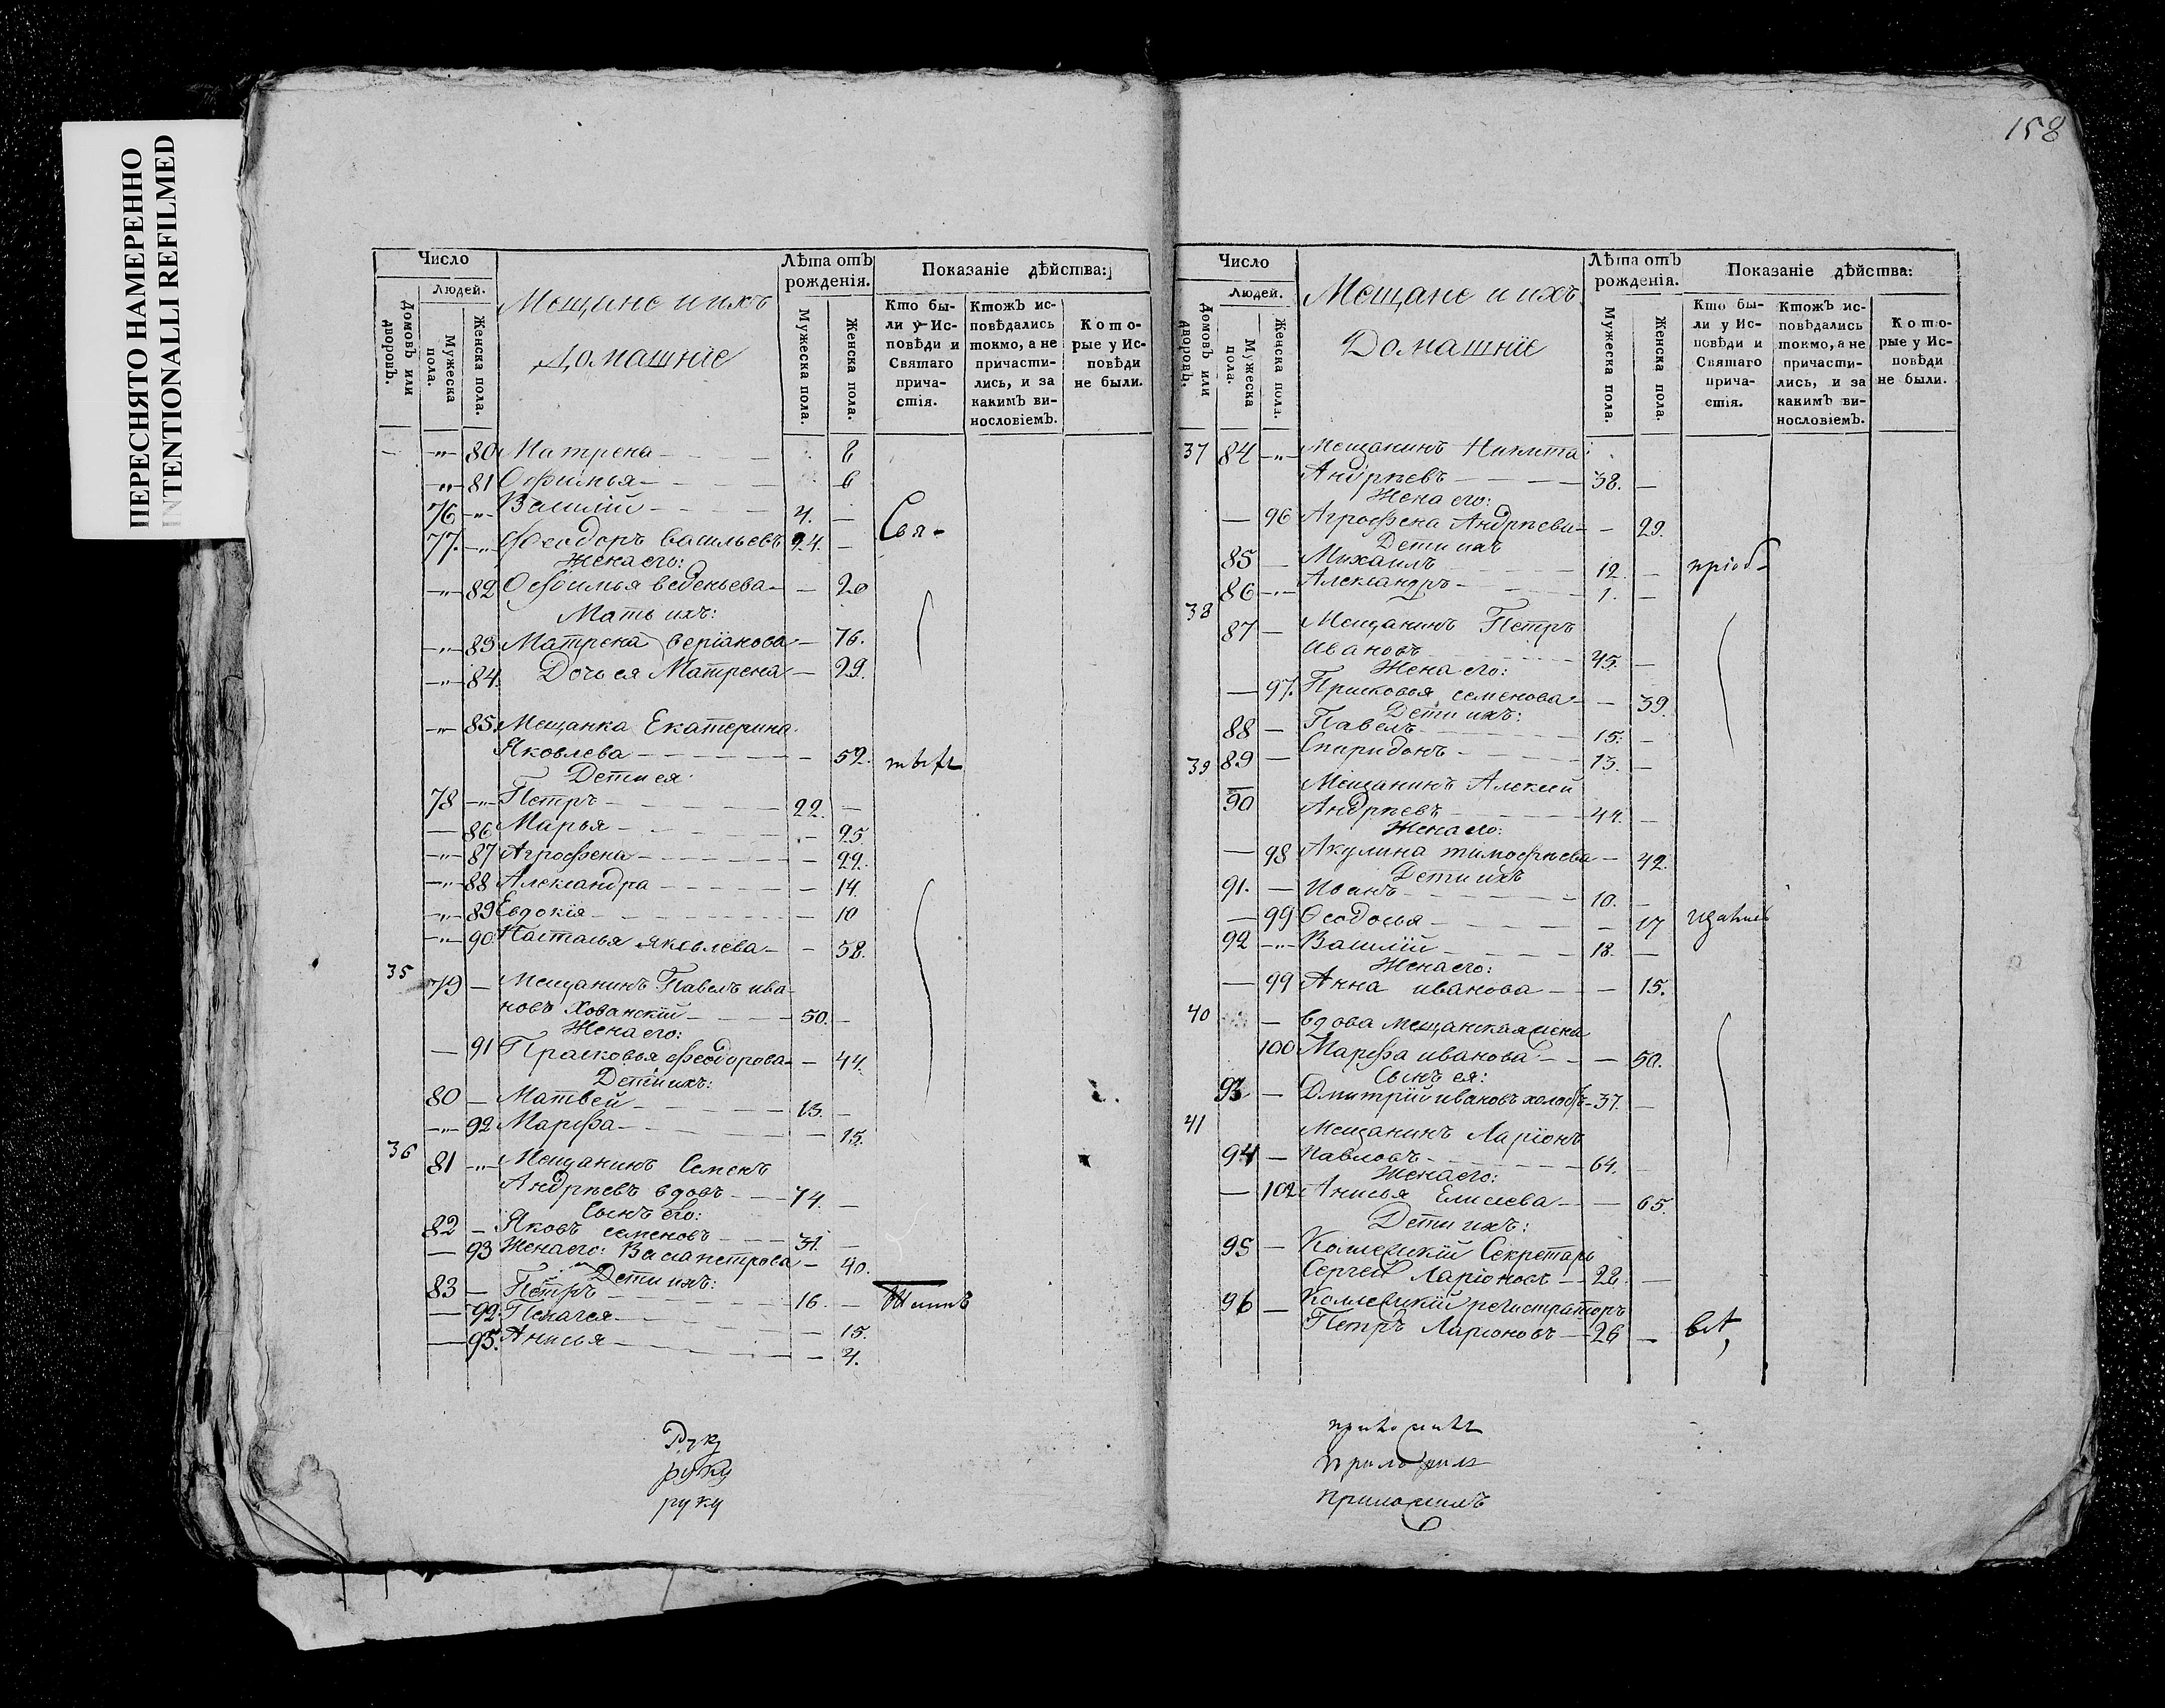 ПЕРЕСНЯТО НАМЕРЕННО
INTENTIONALLI REFILMED
Число
Людей.
Домовъ или дворовъ.
Мужеска пола.
Женска пола.
Мещане и ихъ
Домашніе
Лѣта отъ рожденія.
Мужеска пола.
Женска пола.
Показаніе дѣйства:
Кто были у Исповѣди и Святаго причастія.
Ктожъ исповѣдались токмо, а не причастились, и за какимъ винословіемъ.
Которые у Исповѣди не были.
80 Матрена 8
81 Офимья 6
76 Василій 4.
77. Феодоръ васильевъ 24.
Свя-
Жена его:
82 Офимья веденьева 20
Мать ихъ:
83 Матрена 76.
84. Дочь ея Матрена 29.
85. Мещанка Екатерина
Яковлева 52.
Дети ея:
78 Петръ 22.
86 Марья 25
87 Агрофена 22.
88 Александра 14.
89 Евдокія 10
90. Настасья яковлева 58.
35 79 Мещанинъ Павелъ ива-
новъ Хованскій 50.
Жена его:
91 Прасковья феодорова 44.
Дети ихъ:
80 Матвей 13.
92 Марфа 15.
36 81 Мещанинъ Семенъ
Андрѣевъ вдовъ 74.
Сынъ его:
82 Яковъ семеновъ 31.
93 Жена его: петрова 40.
Дети ихъ:
83 Петръ 16.
92. Пелагея 15.
95. Анисья 4.
Руку
руку
руку
158
Число
Людей.
Домовъ или дворовъ.
Мужеска пола.
Женска пола.
Мещане и ихъ
Домашніе
Лѣта отъ рожденія.
Мужеска пола.
Женска пола.
Показаніе дѣйства:
Кто были у Исповѣди и Святаго причастія.
Ктожъ исповѣдались токмо, а не причастились, и за какимъ винословіемъ.
Которые у Исповѣди не были.
37 84 Мещанинъ Никита
Андрѣевъ 38.
Жена его:
96 Агрофена Андрѣева 29.
Дети ихъ
85 Михаилъ 12.
пріоб-
86 Александръ 1.
38
87 Мещанинъ Петръ
Ивановъ 45.
Жена его:
97. Прасковья семенова 39.
Дети ихъ:
88 Павелъ 15.
39 89 Спиридонъ 13.
Мещанинъ Алексей
90 Андрѣевъ 44.
Жена его:
98 Акулина тимофѣева 42.
Дети ихъ
91. Иванъ 10.
99 Феодосья 17
92 Василій 18.
Жена его:
99 Анна иванова 15.
40 вдова мещанская жена
100 Марфа иванова 50.
Сынъ ея:
93 Дмитрій ивановъ 37.
41 Мещанинъ Ларіонъ
94 Павловъ 64.
Жена его:
102 Анисья Елисеева 65.
Дети ихъ:
95 Коллежскій Секретарь
Сергей Ларіоновъ 28.
96 Коллежскій регистраторъ
Петръ Ларіоновъ 26
приложилъ
приложилъ
приложилъ